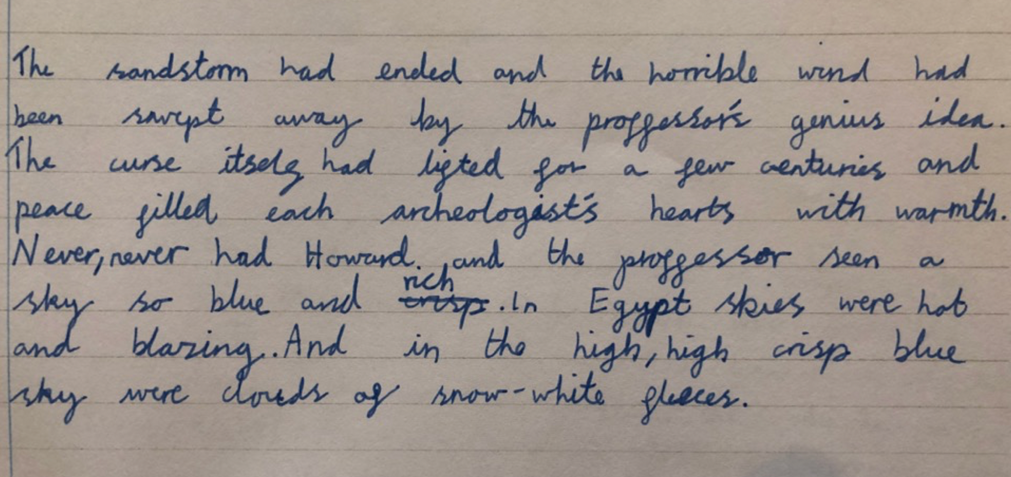 The sandstorm had ended and the horrible wind had
been swept away by the proffessor's genius idea.
The curse itself had lifted for a few centuries and
peace filled each archeologist's hearts with warmth.
Never, never had Howard and the proffessor seen a
sky so blue and rich crisp. In Egypt skies were hot
and blazing. And in the high, high crisp blue
sky were clouds of snow-white fleeces.